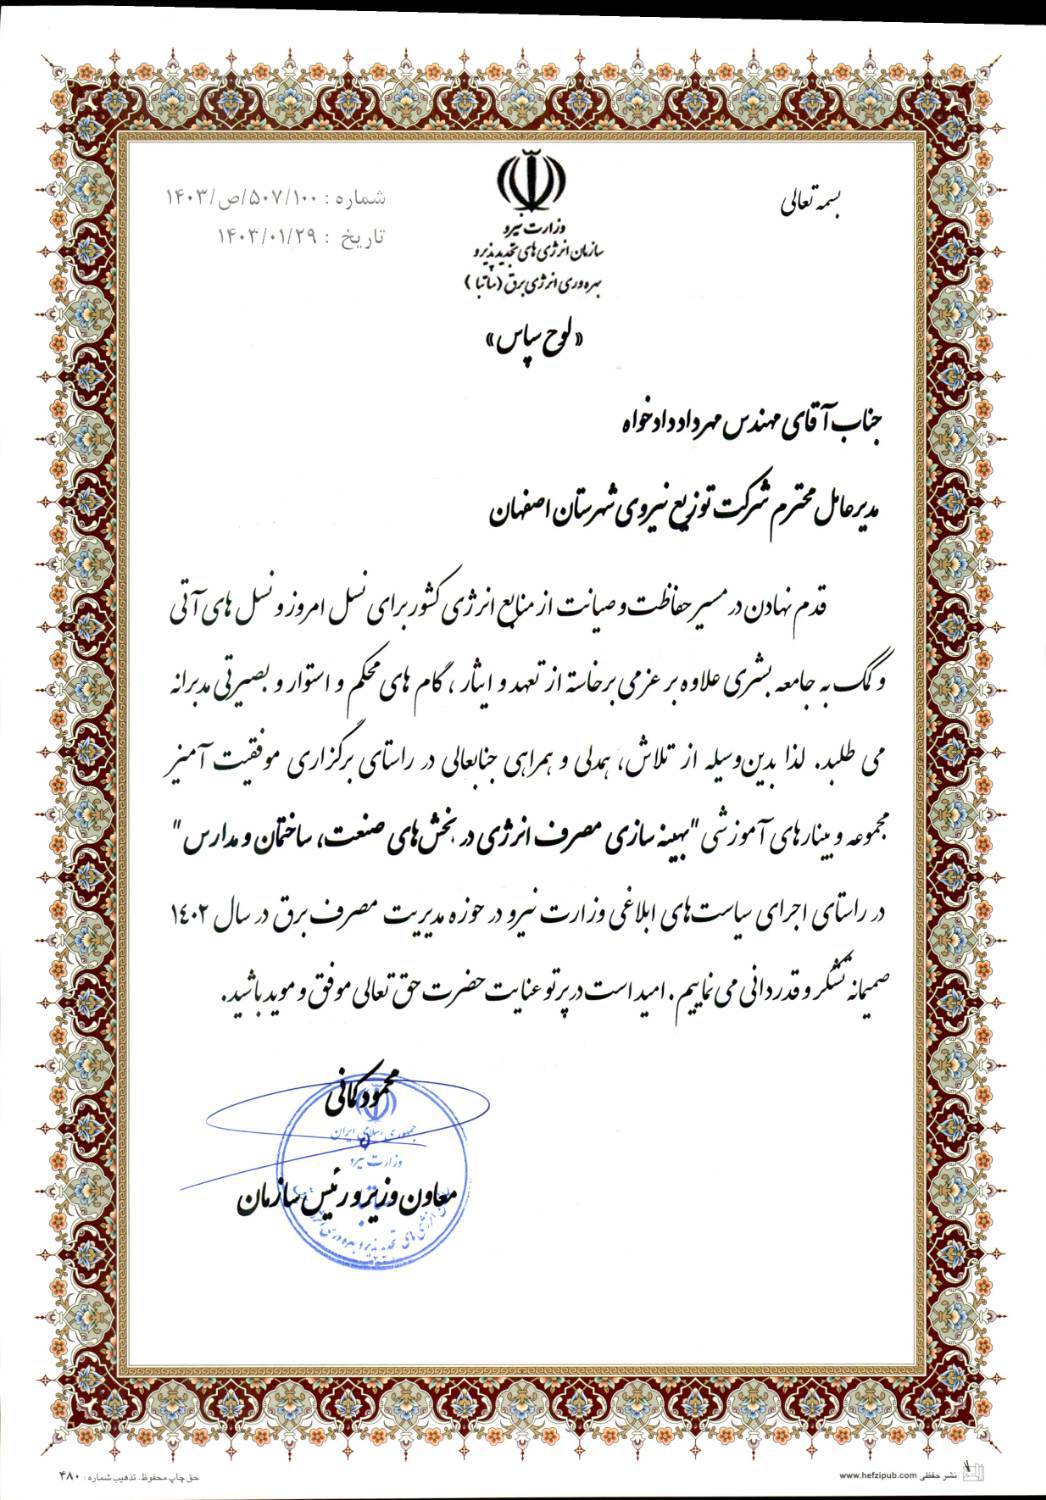 بسمه تعالی
شماره : ۱۴۰۳/ص/۵۰۷/۱۰۰
تاریخ : ۱۴۰۳/۰۱/۲۹
وزارت نیرو
سازمان انرژی های تجدیدپذیر و
بهره وری انرژی برق (ساتبا)
«لوح سپاس»
جناب آقای مهندس مهرداد دادخواه
مدیرعامل محترم شرکت توزیع نیروی شهرستان اصفهان
قدم نهادن در مسیر حفاظت و صیانت از منابع انرژی کشور برای نسل امروز و نسل های آتی
و کمک به جامعه بشری علاوه بر عزمی برخاسته از تعهد و ایثار ، گام های محکم و استوار و بصیرتی مدبرانه
می طلبد. لذا بدین‌وسیله از تلاش، همدلی و همراهی جنابعالی در راستای برگزاری موفقیت آمیز
مجموعه وبینارهای آموزشی "بهینه سازی مصرف انرژی در بخش های صنعت، ساختمان و مدارس "
در راستای اجرای سیاست‌های ابلاغی وزارت نیرو در حوزه مدیریت مصرف برق در سال ۱۴۰۲
صمیمانه تشکر و قدردانی می نماییم. امید است در پرتو عنایت حضرت حق تعالی موفق و موید باشید.
محمود کمانی
جمهوری اسلامی ایران
وزارت نیرو
معاون وزیر و رئیس سازمان
انرژی های تجدیدپذیر و بهره وری
حق چاپ محفوظ. تذهیب شماره : ۴۸۰
نشر حفظی www.hefzipub.com